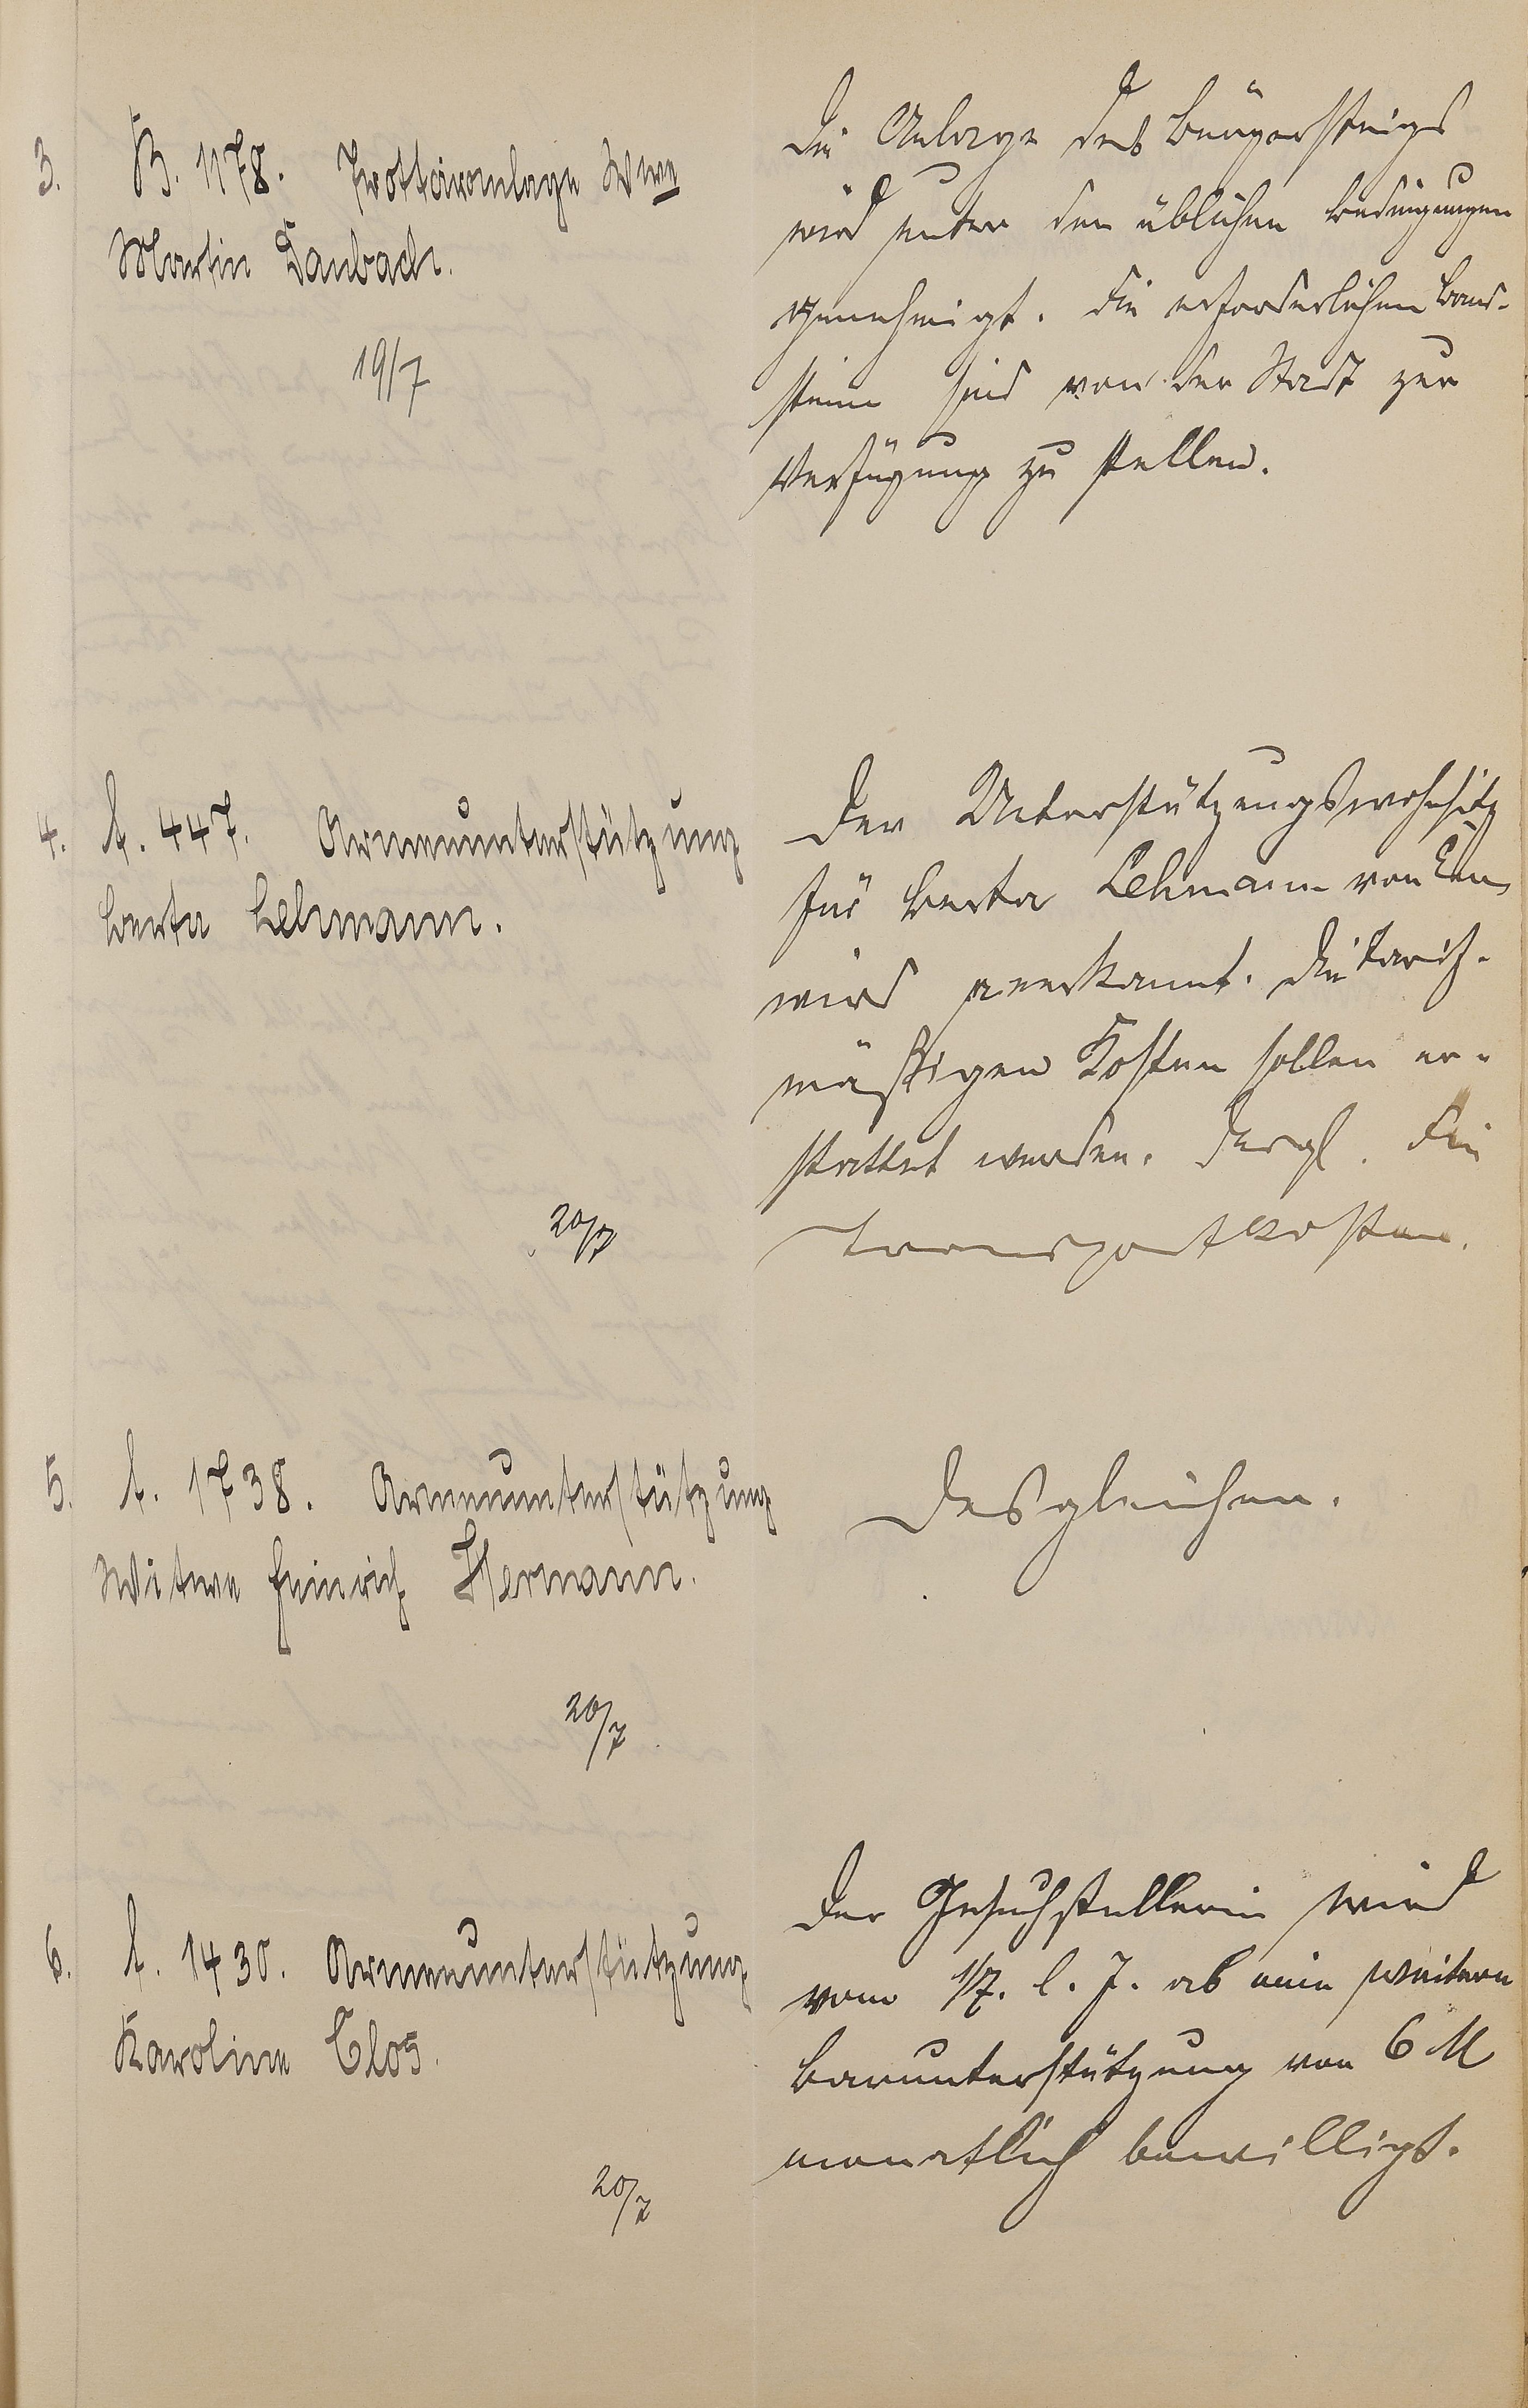 3. B. 1178. Trottoiranlage Wwe
Martin Daubach.
19/7
Die Anlage des Bürgersteigs
wird unter den üblichen Bedingungen
genehmigt. Die erforderlichen Rand-
steine sind von der Stadt zur
Verfügung zu stellen.
4. A. 447. Armenunterstützung
Berta Lehmann.
20/7
Der Unterstützungswohnsitz
für Berta Lehmann von
wird anerkannt. Die tarif-
mäßigen Kosten sollen er-
stattet werden. Desgl. die
Transportkosten.
5. A. 1738. Armenunterstützung
Witwe Heinrich Hermann.
20/7
Desgleichen.
6. A. 1430. Armenunterstützung
Karoline Clos.
20/7
Der Gesuchstellerin wird
vom 1/7. l. J. ab eine weitere
Barunterstützung von 6 M
monatlich bewilligt.